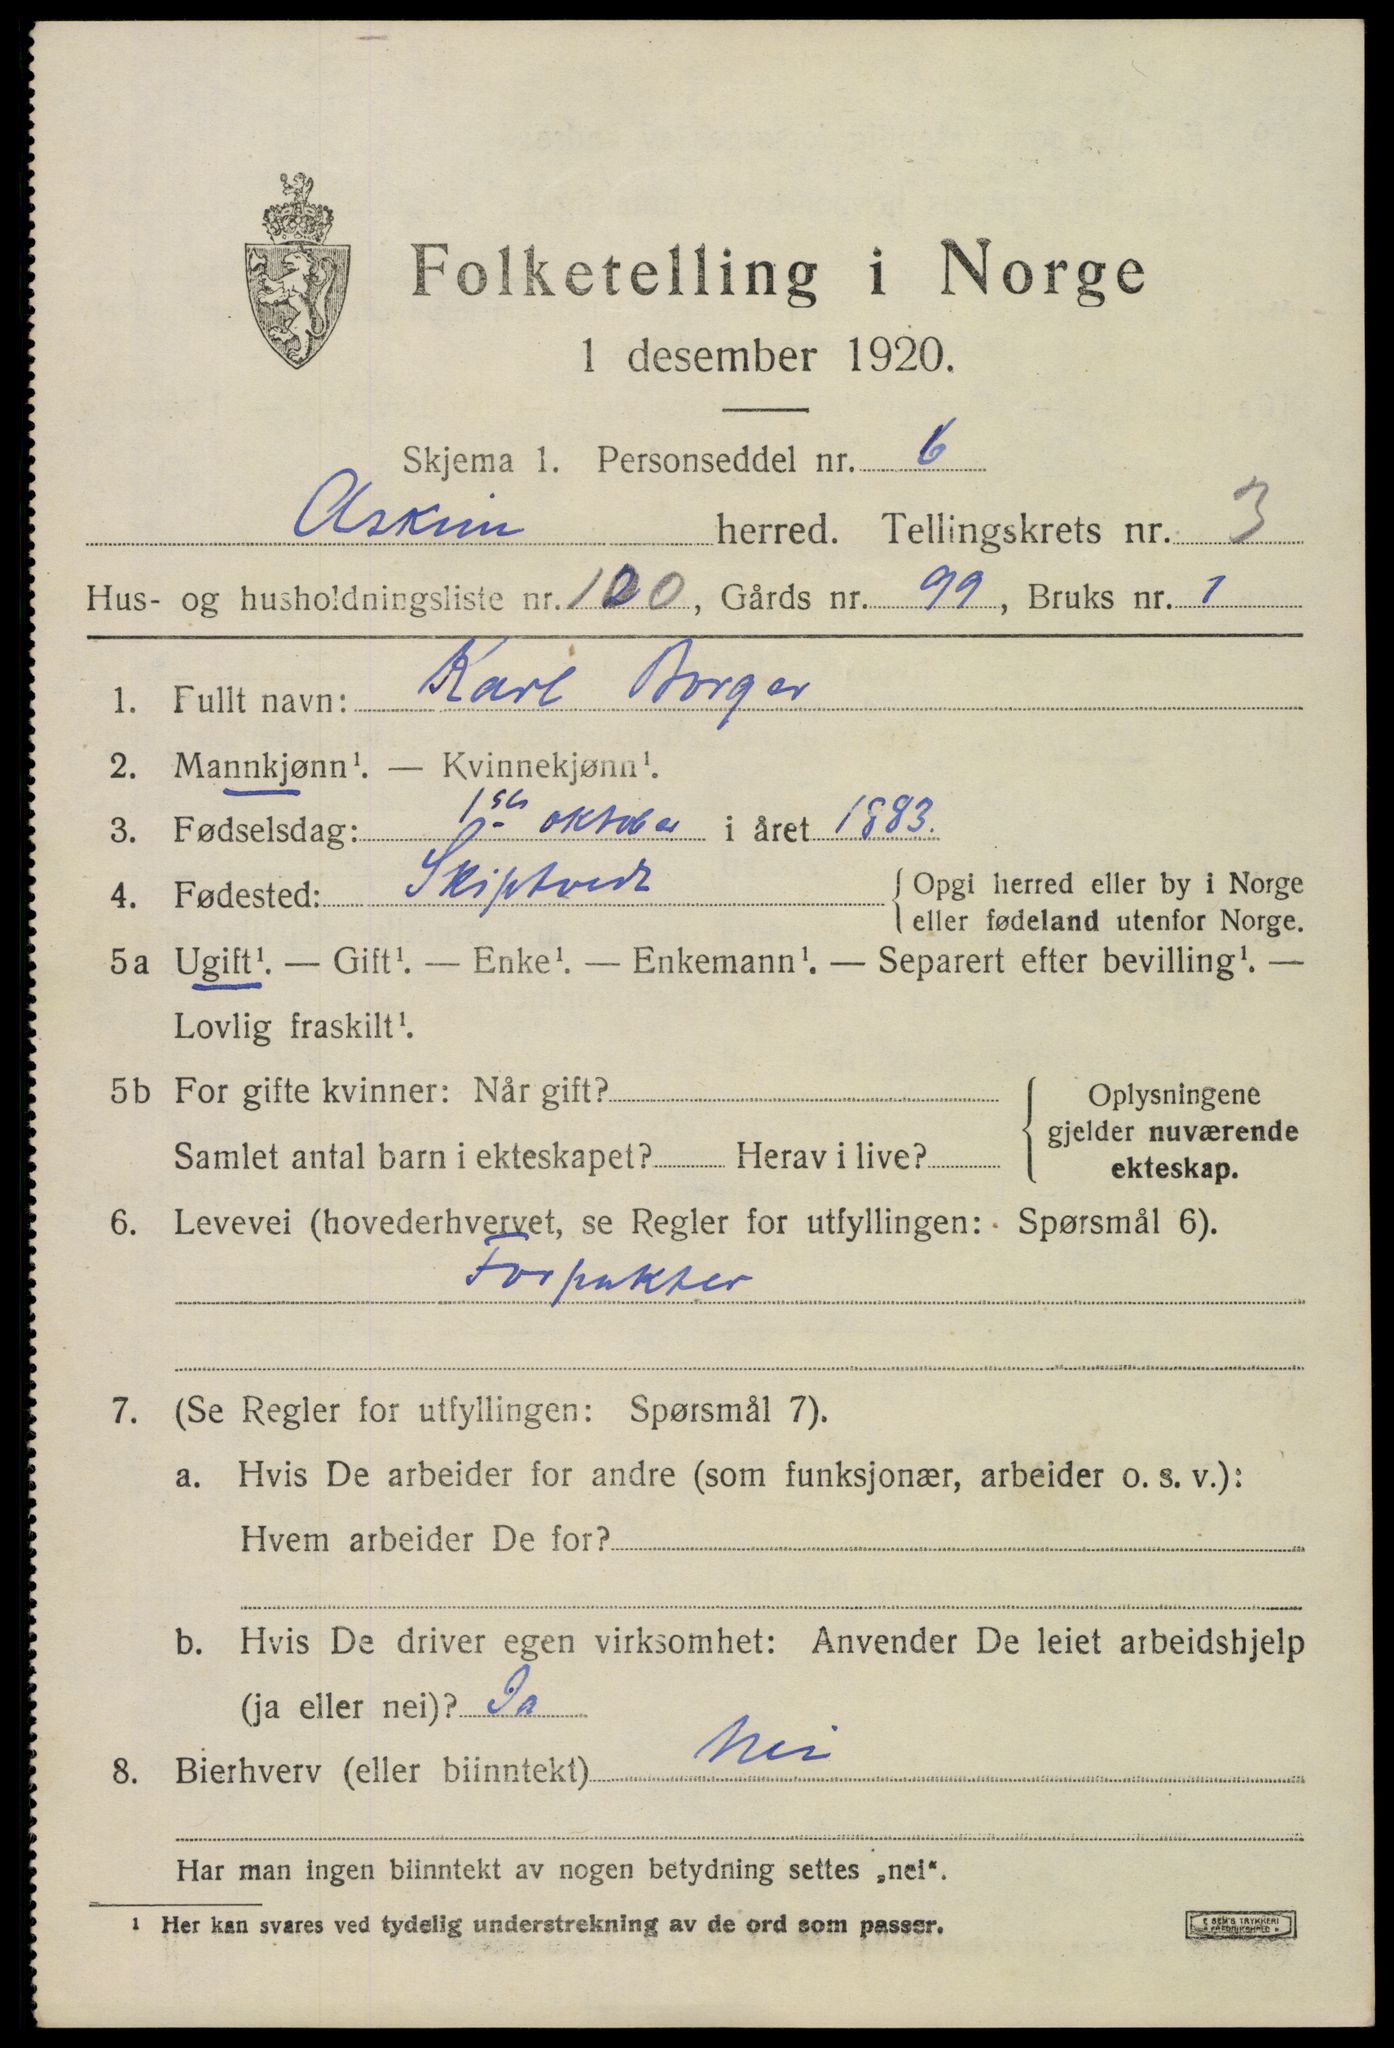 Folketelling i Norge
1 desember 1920.
Skjema 1. Personseddel nr. 6
Askim herred. Tellingskrets nr. 3
Hus- og husholdningsliste nr. 120, Gårds nr. 99, Bruks nr. 1
1. Fullt navn: Karl Borger
2. Mannkjønn¹. — Kvinnekjønn¹.
3. Fødselsdag: 1ste oktober i året 1883.
4. Fødested: Skiptvedt { Opgi herred eller by i Norge
eller fødeland utenfor Norge.
5a Ugift¹. — Gift¹. — Enke¹. — Enkemann¹. — Separert efter bevilling¹. —
Lovlig fraskilt¹.
5b For gifte kvinner: Når gift?
Samlet antal barn i ekteskapet? Herav i live?
{ Oplysningene
gjelder nuværende
ekteskap.
6. Levevei (hovederhvervet, se Regler for utfyllingen: Spørsmål 6).
Forpakter
7. (Se Regler for utfyllingen: Spørsmål 7).
a. Hvis De arbeider for andre (som funksjonær, arbeider o. s. v.):
Hvem arbeider De for?
b. Hvis De driver egen virksomhet: Anvender De leiet arbeidshjelp
(ja eller nei)? Ja
8. Bierhverv (eller biinntekt) Nei
Har man ingen biinntekt av nogen betydning settes „nei“.
¹ Her kan svares ved tydelig understrekning av de ord som passer.
E SEM'S TRYKKERI
FREDRIKSHALD